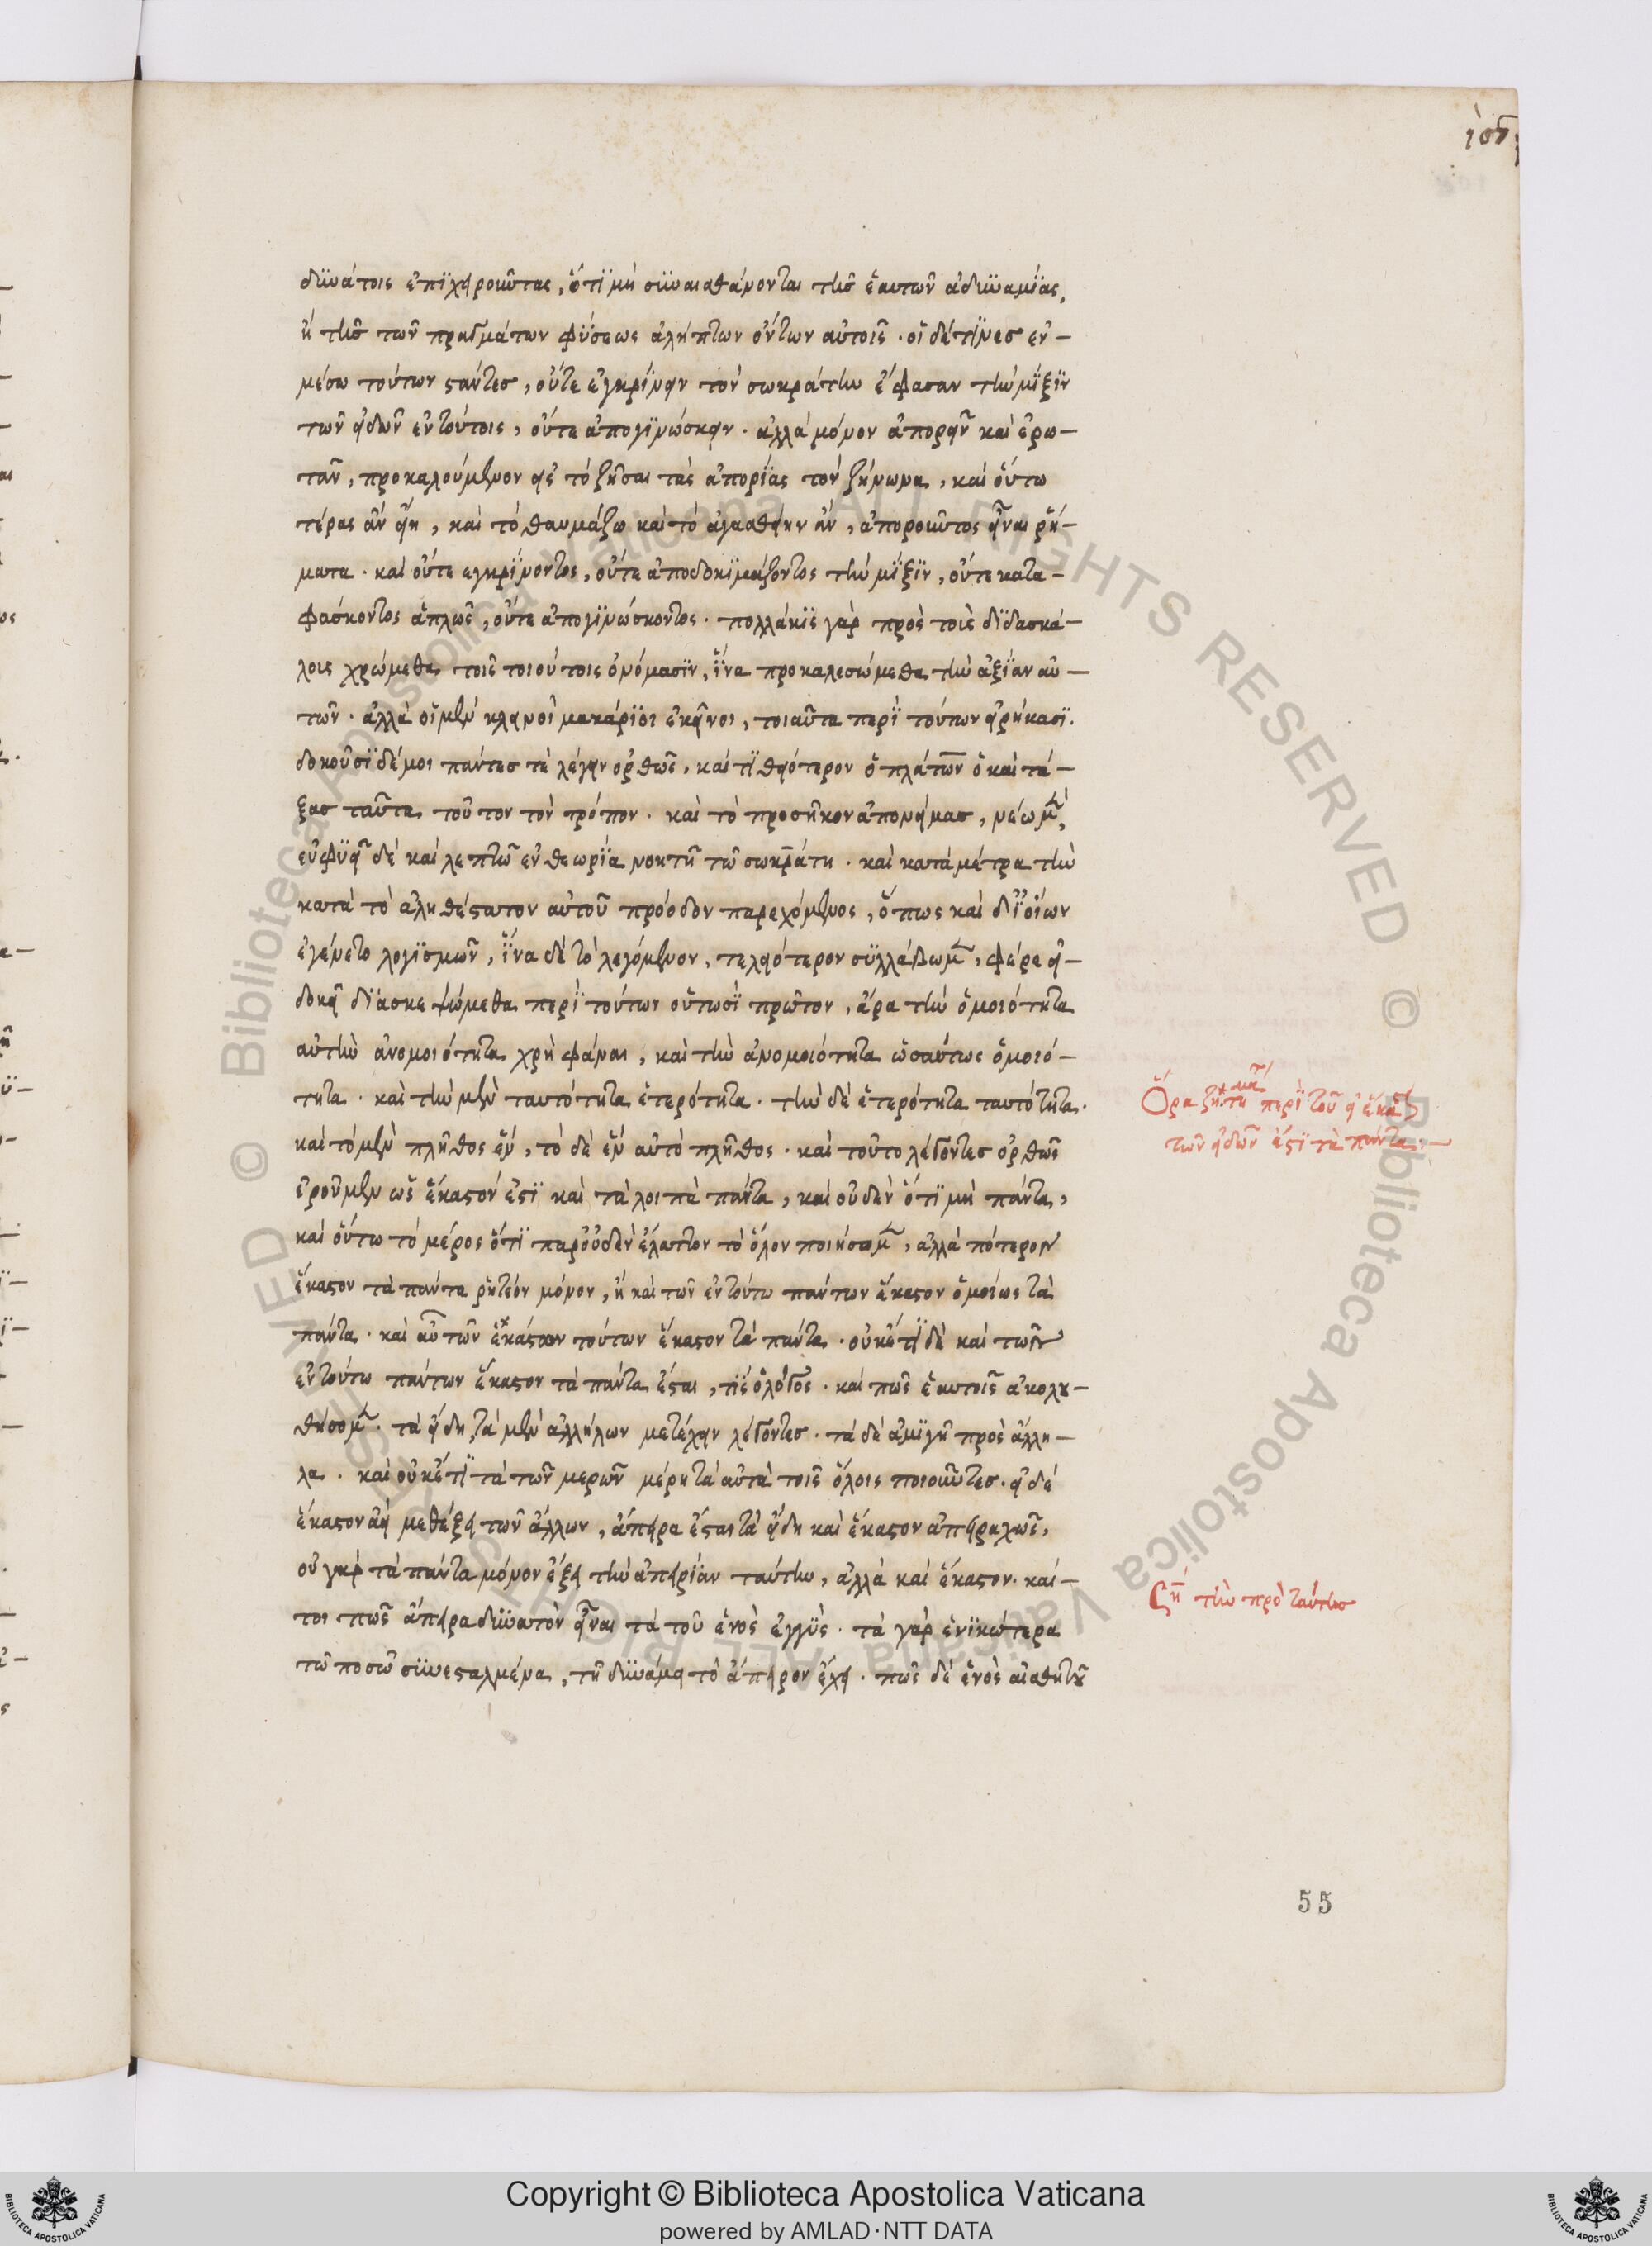 δυνάτοις ἐπιχειροῦντας, ὅτι μὴ συναισθάνονται τῆς ἑαυτῶν ἀδυναμίας,
ἢ τῆς τῶν πραγμάτων φύσεως ἀλήπτων ὄντων αὐτοῖς· οἱ δέ τινες ἐν-
μέσω τούτων στάντες, οὔτε ἐγκρίνειν τὸν σωκράτην ἔφασαν τὴν μίξιν
τῶν εἰδῶν ἐν τούτοις, οὔτε ἀπογινώσκειν· ἀλλὰ μόνον ἀπορεῖν καὶ ἐρω-
τᾶν, προκαλούμενον εἰς τὸ ζητῆσαι τὰς ἀπορίας τὸν ζήνωνα, καὶ οὕτω
τέρας ἂν εἴη, καὶ τὸ θαυμάζω καὶ τὸ ἀγασθείην ἂν, ἀποροῦντος εἶναι ῥή-
ματα· καὶ οὔτε ἐγκρίνοντος, οὔτε ἀποδοκιμάζοντος τὴν μίξιν, οὔτε κατα-
φάσκοντος ἁπλῶς, οὔτε ἀπογινώσκοντος· πολλάκις γὰρ πρὸς τοὺς διδασκά-
λους χρώμεθα τοῖς τοιούτοις ὀνόμασιν, ἵνα προκαλεσώμεθα τὴν ἀξίαν αὐ-
τῶν· ἀλλὰ οἱ μὲν κλεινοὶ μακάριοι ἐκεῖνοι, τοιαῦτα περὶ τούτων εἰρήκασι.
δοκοῦσι δέ μοι πάντες τὲ λέγειν ὀρθῶς, καί τι θειότερον ὁ πλάτων ὁ καὶ τά-
ξας ταῦτα τοῦτον τὸν τρόπον· καὶ τὸ προσῆκον ἀπονείμας, νέω μὲν,
εὐφυεῖ δὲ καὶ λεπτῶ ἐν θεωρία νοητῆ τῶ σωκράτη· καὶ κατὰ μέτρα τὴν
κατὰ τὸ ἀληθέστατον αὐτοῦ πρόοδον παρεχόμενος, ὅπως καὶ δι' οἵων
ἐγένετο λογισμῶν, ἵνα δὲ τὸ λεγόμενον, τελειότερον συλλάβωμεν, φέρε εἰ-
δοκεῖ διασκεψώμεθα περὶ τούτων οὑτωσὶ πρῶτον, ἆρα τὴν ὁμοιότητα
αὐτὴν ἀνομοιότητα χρὴ φάναι, καὶ τὴν ἀνομοιότητα ὡσαύτως ὁμοιό-
τητα· καὶ τὴν μὲν ταυτότητα ἑτερότητα· τὴν δὲ ἑτερότητα ταυτότητα.
καὶ τὸ μὲν πλῆθος ἓν, τὸ δὲ ἓν αὐτὸ πλῆθος· καὶ τοῦτο λέγοντες ὀρθῶς
ἐροῦμεν ὡς ἕκαστόν ἐστι καὶ τὰ λοιπὰ πάντα, καὶ οὐδὲν ὅτι μὴ πάντα,
καὶ οὕτω τὸ μέρος ὅτι παρ' οὐδὲν ἔλαττον τὸ ὅλον ποιήσομεν, ἀλλὰ πότερον
ἕκαστον τὰ πάντα ῥητέον μόνον, ἢ καὶ τῶν ἐν τούτω πάντων ἕκαστον ὁμοίως τὰ
πάντα· καὶ αὖ τῶν ἑκάστων τούτων ἕκαστον τὰ πάντα· οὐκέτι δὲ καὶ τῶν
ἐν τούτω πάντων ἕκαστον τὰ πάντα ἔσται, τίς ὁ λόγος· καὶ πῶς ἑαυτοῖς ἀκολου-
θήσομεν· τὰ εἴδη, τὰ μὲν ἀλλήλων μετέχειν λέγοντες· τὰ δὲ ἀμιγῆ πρὸς ἄλλη-
λα· καὶ οὐκέτι τὰ τῶν μερῶν μέρη τὰ αὐτὰ τοῖς ὅλοις ποιοῦντες· εἰ δὲ
ἕκαστον ἀεὶ μεθέξει τῶν ἄλλων, ἄπειρα ἔσται τὰ εἴδη καὶ ἕκαστον ἀπειραχῶς,
οὐ γὰρ τὰ πάντα μόνον ἕξει τὴν ἀπειρίαν ταύτην, ἀλλὰ καὶ ἕκαστον· καί-
τοι πῶς ἄπειρα δυνατὸν εἶναι τὰ τοῦ ἑνὸς ἐγγύς· τὰ γὰρ ἑνικώτερα
τῶ ποσῶ συνεσταλμένα, τῆ δυνάμει τὸ ἄπειρον ἔχει· πῶς δὲ ἑνὸς αἰσθητοῦ
Ὅρα ζήτημα περὶ τοῦ εἰ ἕκαστον
τῶν εἰδῶν ἐστὶ τὰ πάντα:—
τὴν πρὸ ταύτης
55
Copyright © Biblioteca Apostolica Vaticana
powered by AMLAD·NTT DATA
© Biblioteca Apostolica Vaticana ALL RIGHTS RESERVED